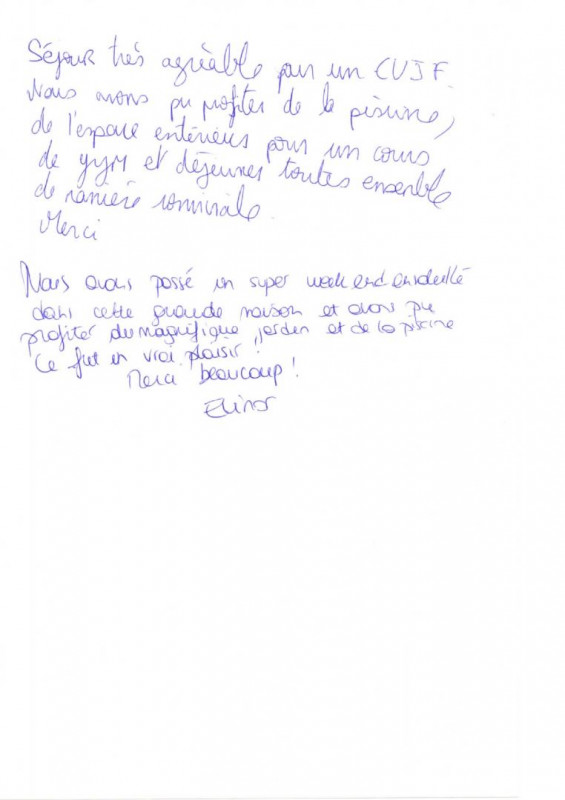 Séjour très agréable pour un CVJF.
Nous avons pu profiter de la piscine,
de l'espace extérieur pour un cours
de gym et déjeuner toutes ensemble
de manière conviviale.
Merci
Nous avons passé un super week end ensoleillé
dans cette grande maison et avons pu
profiter du magnifique jardin et de la piscine
Ce fut un vrai plaisir !
Merci beaucoup !
Elinor